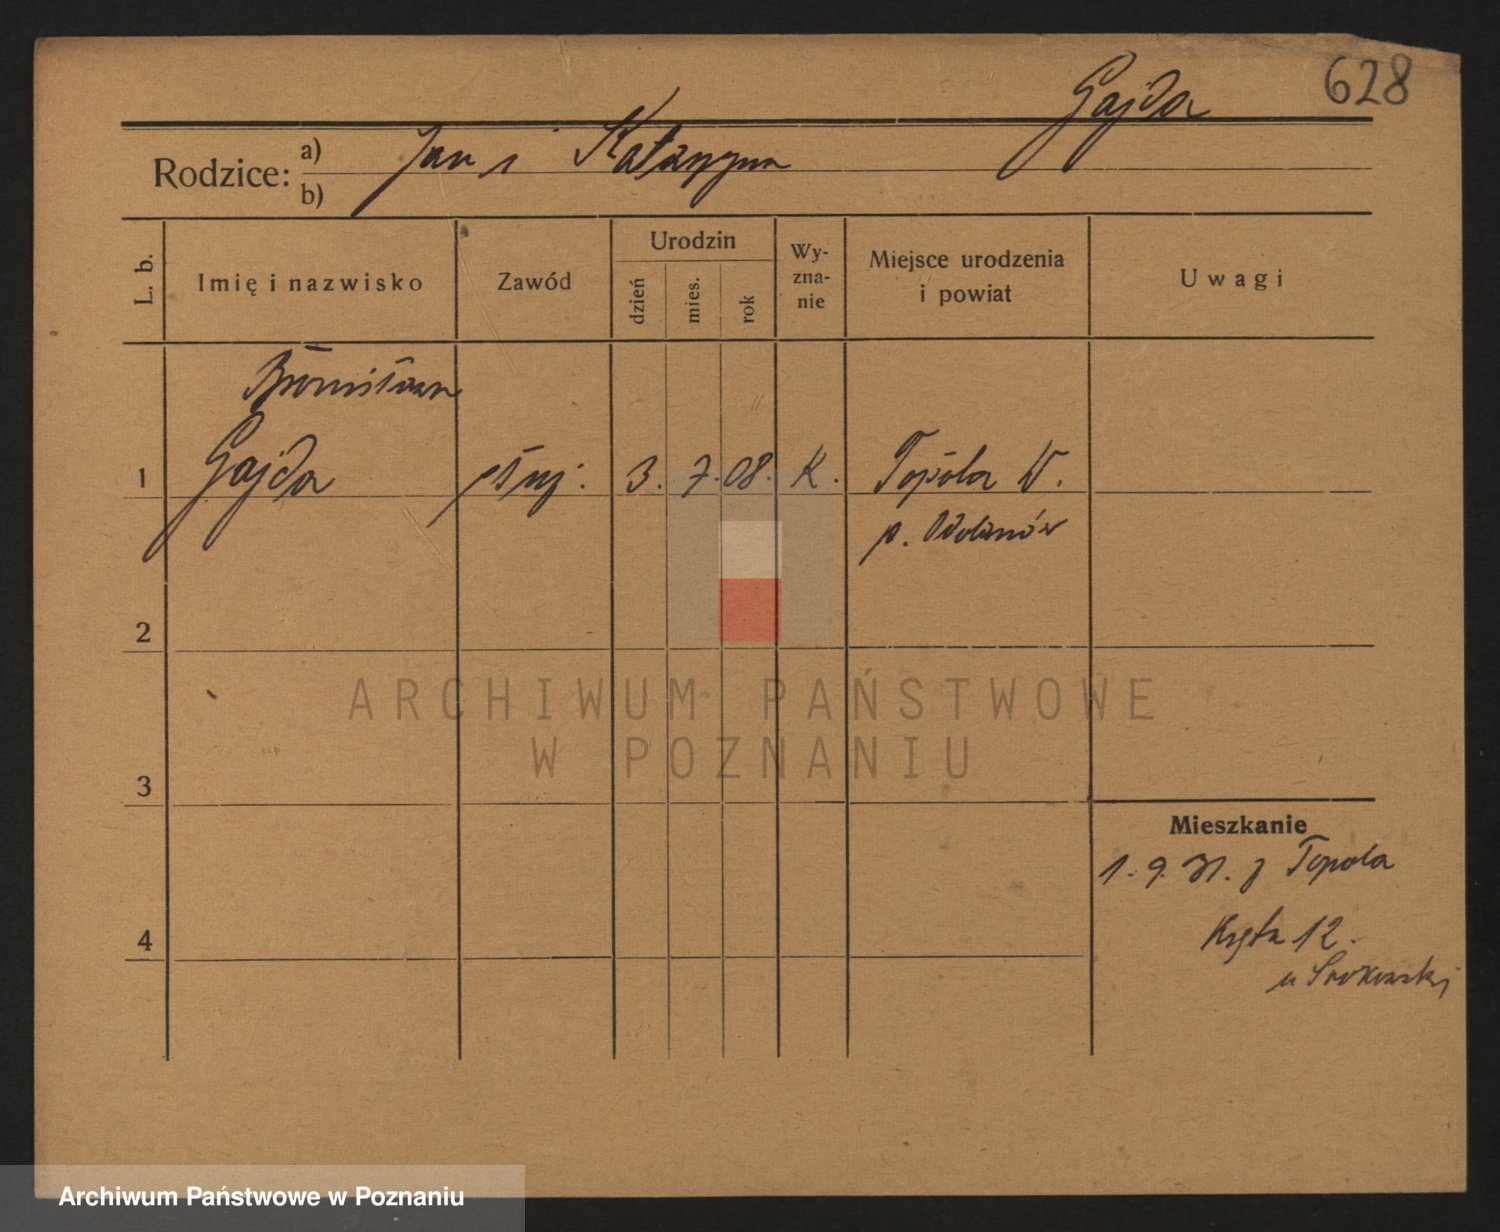 628
Gajda
Rodzice: a) Jan i Katarzyna
b)
L. b.
Imię i nazwisko
Zawód
Urodzin
dzień
mies.
rok
Wy-
zna-
nie
Miejsce urodzenia
i powiat
Uwagi
Bronisława
1 Gajda służ. 3. 7. 08. K. Topola W.
p. Odolanów
2
3
4
ARCHIWUM PAŃSTWOWE
W POZNANIU
Mieszkanie
1. 9. 31. z Topola
Kręta 12.
u Srokowski
Archiwum Państwowe w Poznaniu